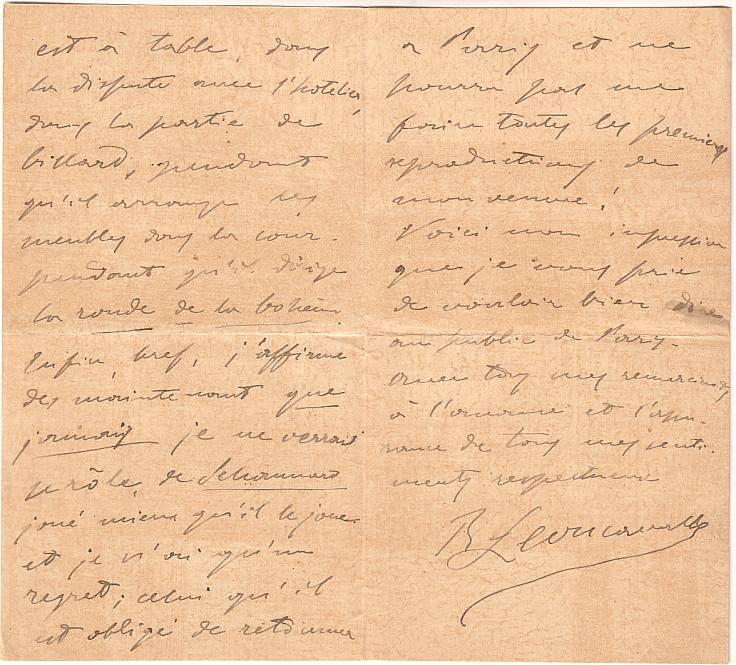 est à table, dans
la dispute avec l'hotelier,
dans la partie de
billard, pendant
qu'il arrange les
meubles dans la cour -
pendant qu'il dirige
la ronde de la bohème
Enfin, bref, j'affirme
dès maintenant que
jamais je ne verrai
le rôle de Schaunard
joué mieux qu'il le joue -
et je n'ai qu'un
regret; celui qu'il
est obligé de retourner
a Paris et ne
pourra pas me
faire toutes les premières
reproductions de
mon œuvre!
Voici mon impression
que je vous prie
de vouloir bien dire
au public de Paris -
avec tous mes remerciments
à l'avance et l'assu-
rance de tous mes senti-
ments respectueux
R Leoncavallo